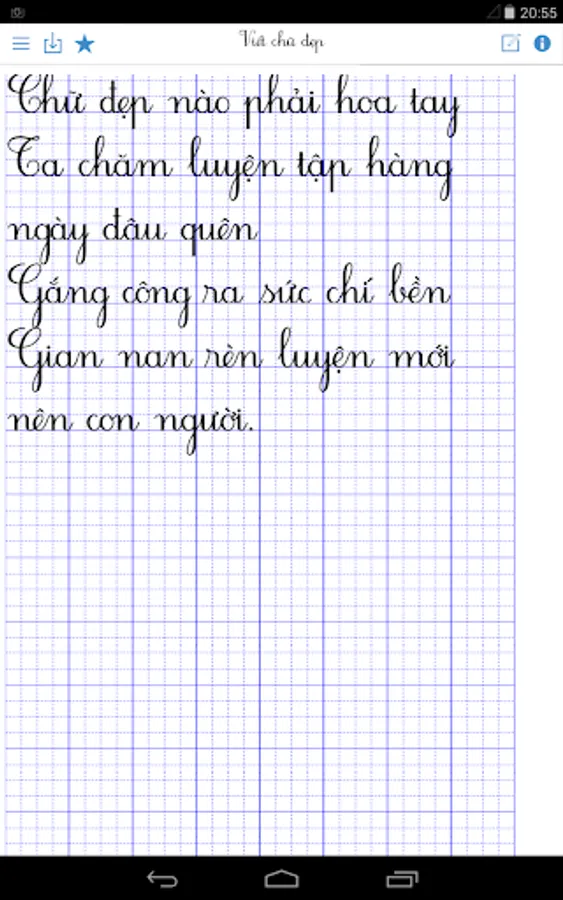 20:55
Viết chữ đẹp
Chữ đẹp nào phải hoa tay
Ta chăm luyện tập hàng
ngày đâu quên
Gắng công ra sức chí bền
Gian nan rèn luyện mới
nên con người.